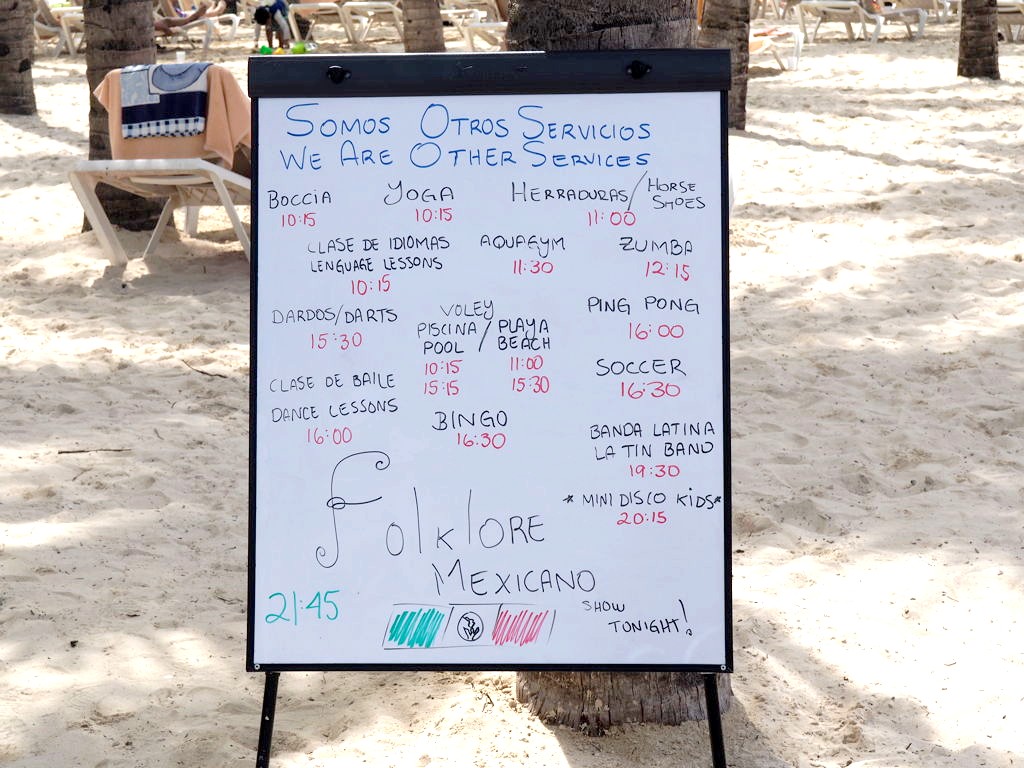 SOMOS OTROS SERVICIOS
WE ARE OTHER SERVICES
BOCCIA
10:15
YOGA
10:15
HERRADURAS/HORSE SHOES
11:00
CLASE DE IDIOMAS
LENGUAGE LESSONS
10:15
AQUAGYM
11:30
ZUMBA
12:15
DARDOS/DARTS
15:30
VOLEY
PISCINA / PLAYA
POOL BEACH
10:15 11:00
15:15 15:30
PING PONG
16:00
SOCCER
16:30
CLASE DE BAILE
DANCE LESSONS
16:00
BINGO
16:30
BANDA LATINA
LATIN BAND
19:30
* MINI DISCO KiDS*
20:15
FOlklORE
MEXICANO
21:45
SHOW
TONIGHT!